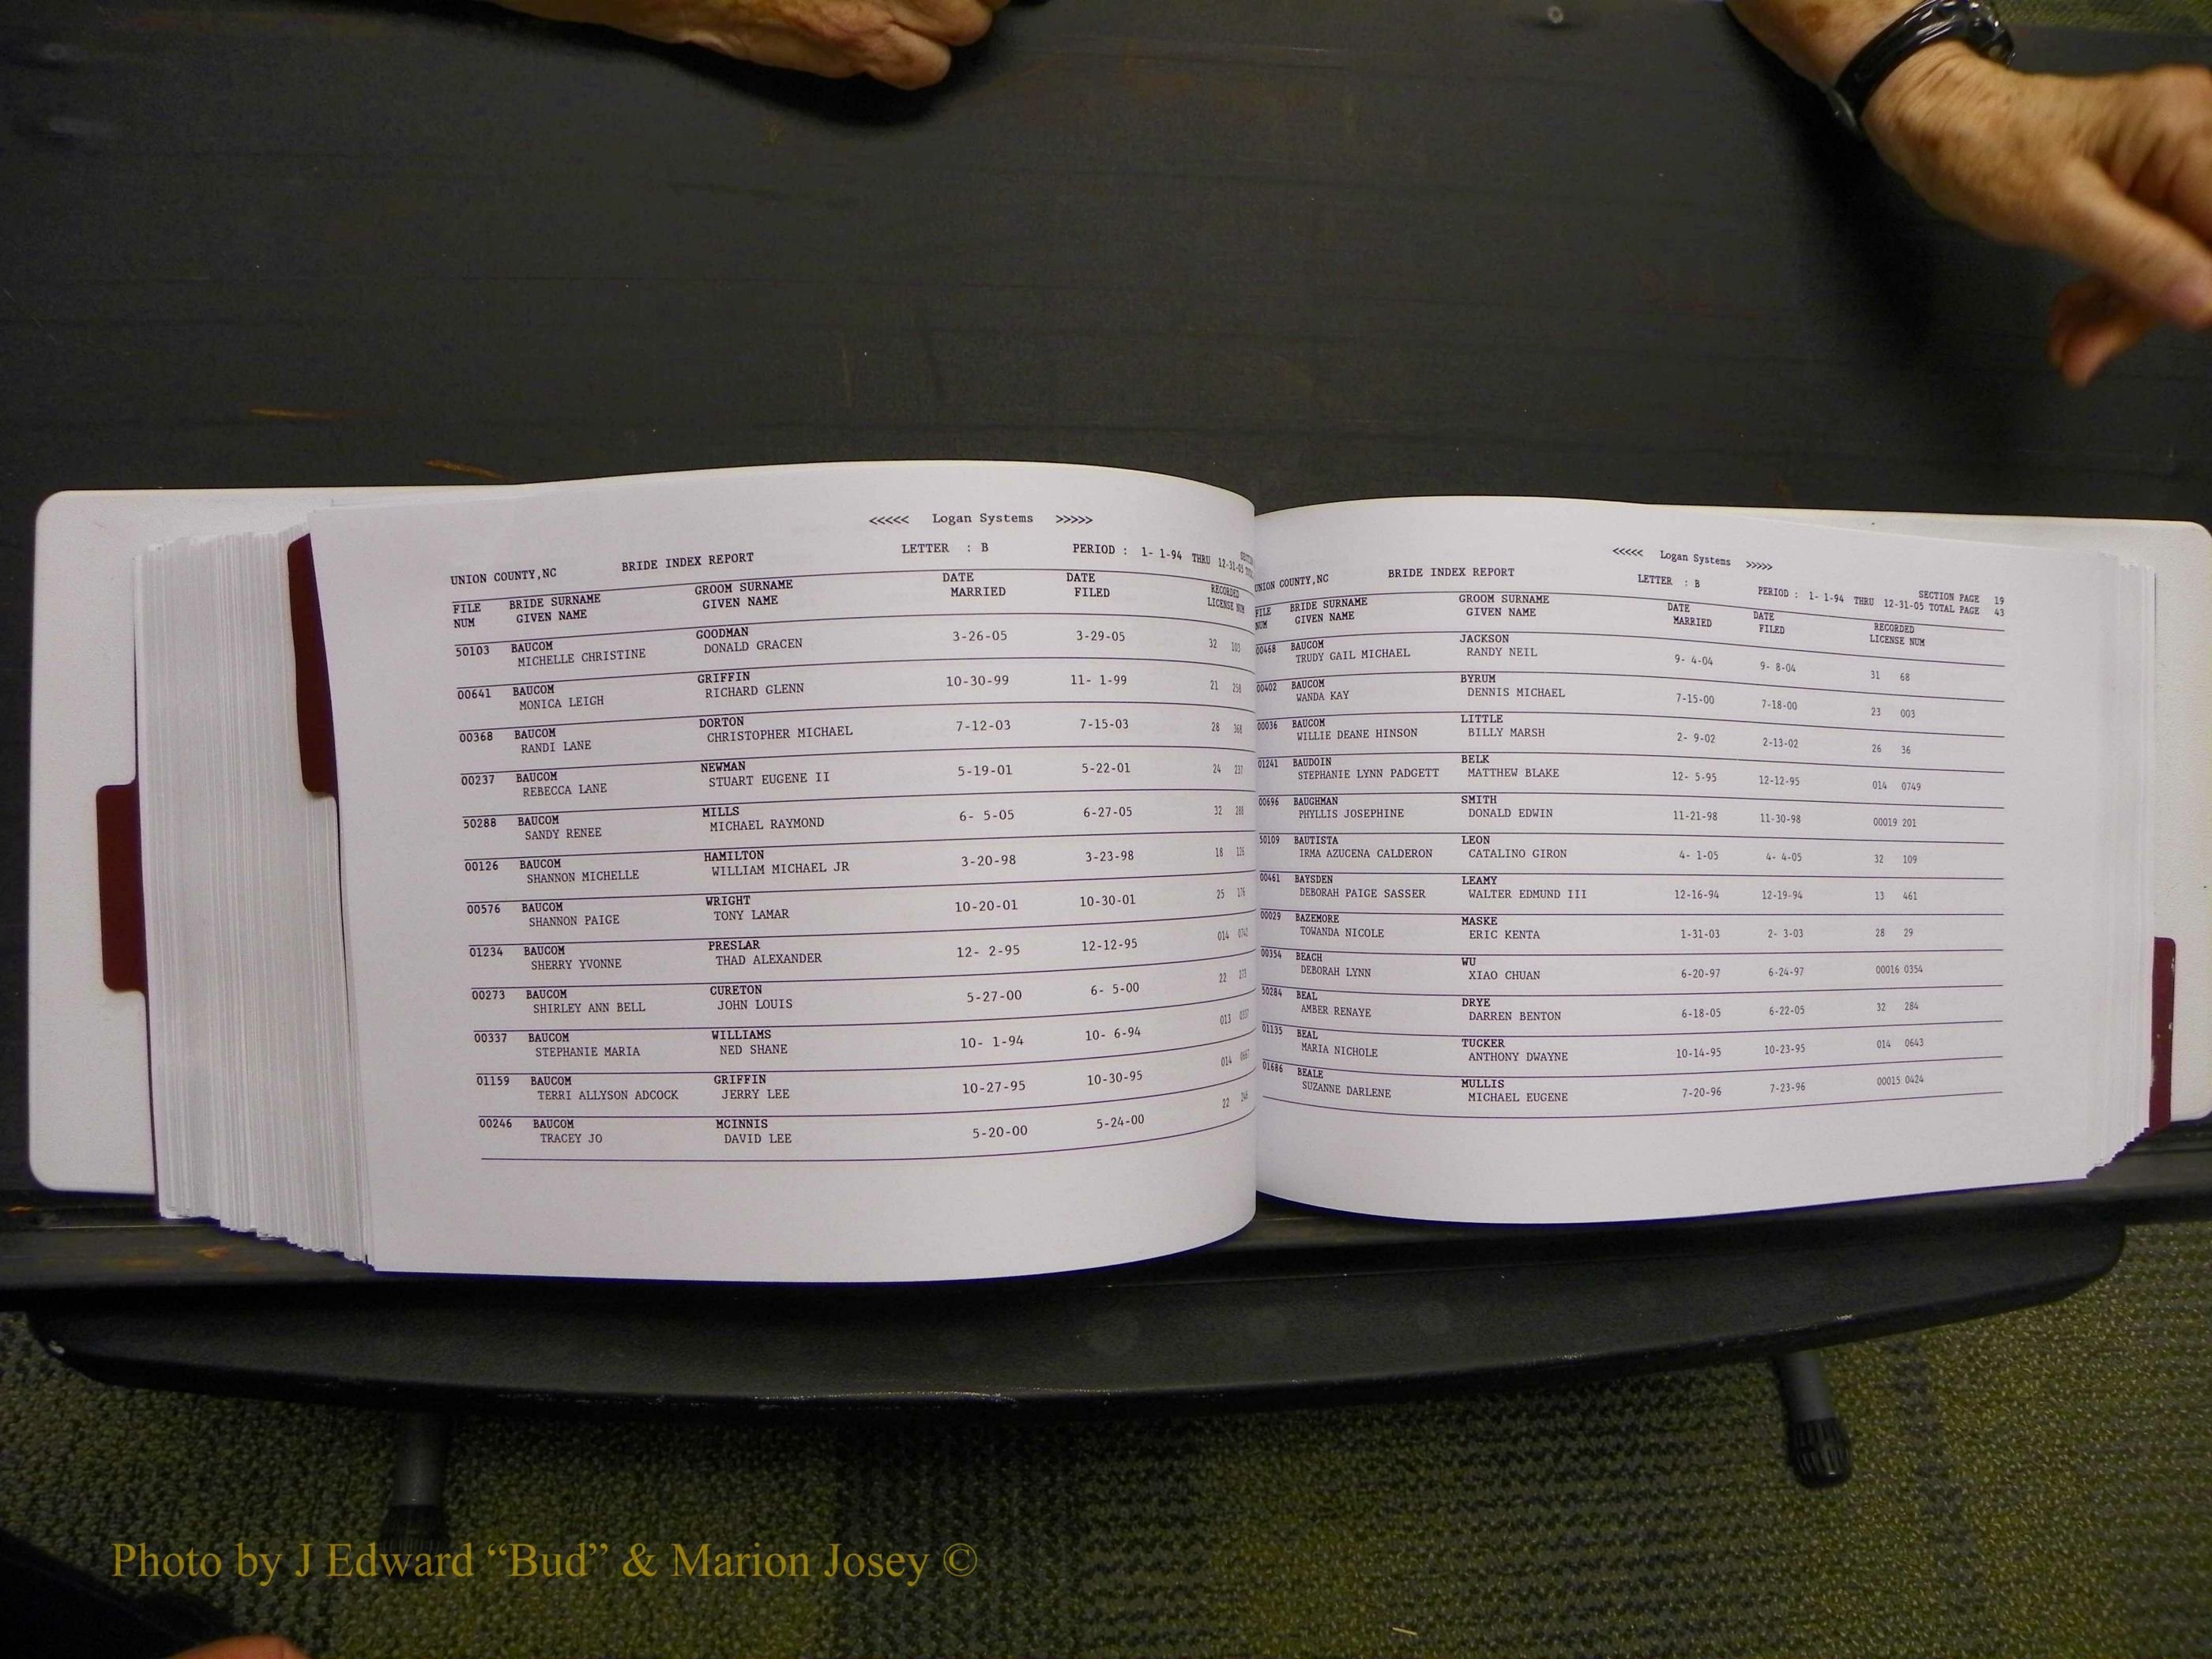 <<<<< Logan Systems >>>>>
UNION COUNTY,NC BRIDE INDEX REPORT LETTER : B PERIOD : 1- 1-94 THRU 12-31-05
FILE BRIDE SURNAME GROOM SURNAME DATE DATE RECORDED
NUM GIVEN NAME GIVEN NAME MARRIED FILED LICENSE NUM
50103 BAUCOM GOODMAN 3-26-05 3-29-05 32 103
MICHELLE CHRISTINE DONALD GRACEN
00641 BAUCOM GRIFFIN 10-30-99 11- 1-99 21 258
MONICA LEIGH RICHARD GLENN
00368 BAUCOM DORTON 7-12-03 7-15-03 28 368
RANDI LANE CHRISTOPHER MICHAEL
00237 BAUCOM NEWMAN 5-19-01 5-22-01 24 237
REBECCA LANE STUART EUGENE II
50288 BAUCOM MILLS 6- 5-05 6-27-05 32 288
SANDY RENEE MICHAEL RAYMOND
00126 BAUCOM HAMILTON 3-20-98 3-23-98 18 126
SHANNON MICHELLE WILLIAM MICHAEL JR
00576 BAUCOM WRIGHT 10-20-01 10-30-01 25 176
SHANNON PAIGE TONY LAMAR
01234 BAUCOM PRESLAR 12- 2-95 12-12-95 014
SHERRY YVONNE THAD ALEXANDER
00273 BAUCOM CURETON 5-27-00 6- 5-00 22 273
SHIRLEY ANN BELL JOHN LOUIS
00337 BAUCOM WILLIAMS 10- 1-94 10- 6-94 013
STEPHANIE MARIA NED SHANE
01159 BAUCOM GRIFFIN 10-27-95 10-30-95 014
TERRI ALLYSON ADCOCK JERRY LEE
00246 BAUCOM MCINNIS 5-20-00 5-24-00 22 246
TRACEY JO DAVID LEE
<<<<< Logan Systems >>>>>
UNION COUNTY,NC BRIDE INDEX REPORT LETTER : B SECTION PAGE 19
PERIOD : 1- 1-94 THRU 12-31-05 TOTAL PAGE 43
FILE BRIDE SURNAME GROOM SURNAME DATE DATE RECORDED
NUM GIVEN NAME GIVEN NAME MARRIED FILED LICENSE NUM
00468 BAUCOM JACKSON 9- 4-04 9- 8-04 31 68
TRUDY GAIL MICHAEL RANDY NEIL
00402 BAUCOM BYRUM 7-15-00 7-18-00 23 003
WANDA KAY DENNIS MICHAEL
00036 BAUCOM LITTLE 2- 9-02 2-13-02 26 36
WILLIE DEANE HINSON BILLY MARSH
01241 BAUDOIN BELK 12- 5-95 12-12-95 014 0749
STEPHANIE LYNN PADGETT MATTHEW BLAKE
00696 BAUGHMAN SMITH 11-21-98 11-30-98 00019 201
PHYLLIS JOSEPHINE DONALD EDWIN
50109 BAUTISTA LEON 4- 1-05 4- 4-05 32 109
IRMA AZUCENA CALDERON CATALINO GIRON
00461 BAYSDEN LEAMY 12-16-94 12-19-94 13 461
DEBORAH PAIGE SASSER WALTER EDMUND III
00029 BAZEMORE MASKE 1-31-03 2- 3-03 28 29
TOWANDA NICOLE ERIC KENTA
00354 BEACH WU 6-20-97 6-24-97 00016 0354
DEBORAH LYNN XIAO CHUAN
50284 BEAL DRYE 6-18-05 6-22-05 32 284
AMBER RENAYE DARREN BENTON
01135 BEAL TUCKER 10-14-95 10-23-95 014 0643
MARIA NICHOLE ANTHONY DWAYNE
01686 BEALE MULLIS 7-20-96 7-23-96 00015 0424
SUZANNE DARLENE MICHAEL EUGENE
Photo by J Edward “Bud” & Marion Josey ©